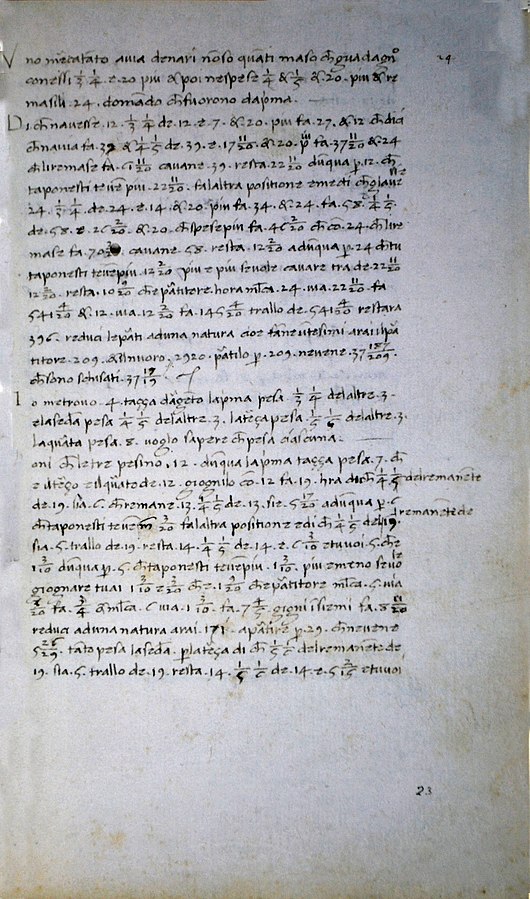 24
Uno mercatato avia denari non so quanti ma so ch guadagno
con essi 1/3 1/4 e 20 piu & poi ne spese 1/4 & 1/5 & 20 piu & re
maseli 24 domando ch fuorono da pma
Di ch navesse 12 1/3 1/4 de 12 e 7 & 20 piu fa 27 & 12 ch dici
ch navia fa 39 & 1/4 1/5 de 39 e 17 11/20 & 20 piu fa 37 11/20 & 24
ch li remase fa 61 11/20 cavane 39 resta 22 11/20 duqua p 12 ch
taponesti teve piu 22 11/20 fa laltra positione e metti ch
24 1/3 1/4 de 24 e 14 & 20 piu fa 34 & 24 fa 58 1/4 1/5
de 58 e 26 2/20 & 20 ch spese piu fa 46 2/20 ch co 24 ch li re
mase fa 70 cavane 58 resta 12 2/20 aduqua p 24 ch tu
taponesti teve piu 12 2/20 piu e piu se vole cavare tra de 22 11/20
12 2/20 resta 10 9/20 ch e partitore hora mca 24 via 22 11/20 fa
541 4/20 & 12 via 12 2/20 fa 145 4/20 trallo de 541 4/20 restara
396 reduci le parti ad una natura cioe fane vitesimi arai il par
titore 209 & 7920 partilo p 209 ne vene 37 187/209
ch sono schisati 37 17/19
Io me trovo 4 tacça dargeto la pma pesa 1/3 1/4 del altre 3
e la seda pesa 1/4 1/5 del altre 3 la terça pesa 1/5 1/6 de laltre 3
la quarta pesa 8 voglo sapere ch pesa ciascuna
poni ch le tre pesino 12 duqua la pma tacça pesa 7 ch
e il terço e il quarto de 12 giognilo co 12 fa 19 hora di ch 1/4 1/5 del remanete
de 19 sia 6 ch remane 13 1/4 1/5 de 13 sie 5 17/20 aduqua p 6
ch taponesti teve 3/20 fa laltra positione e di ch 1/4 1/5 del remanete de 19
sia 5 trallo de 19 resta 14 1/4 1/5 de 14 e 6 3/10 e tu voi 5 ch e
1 3/10 duqua p 5 ch taponesti teve piu 1 3/10 piu e meno se vole
giognare tu ai 1 3/10 e 3/20 ch e 1 9/20 ch e partitore mca 5 via
3/20 fa 3/4 & mca 6 via 1 3/10 fa 7 4/5 giogni isiemi fa 8 11/20
reduci ad una natura arai 171 a partire p 29 ch ne vene
5 26/29 tato pesa la seda p la terça di ch 1/5 1/6 del remanete de
19 sia 5 trallo de 19 resta 14 1/5 1/6 de 14 e 5 2/15 e tu voi
23